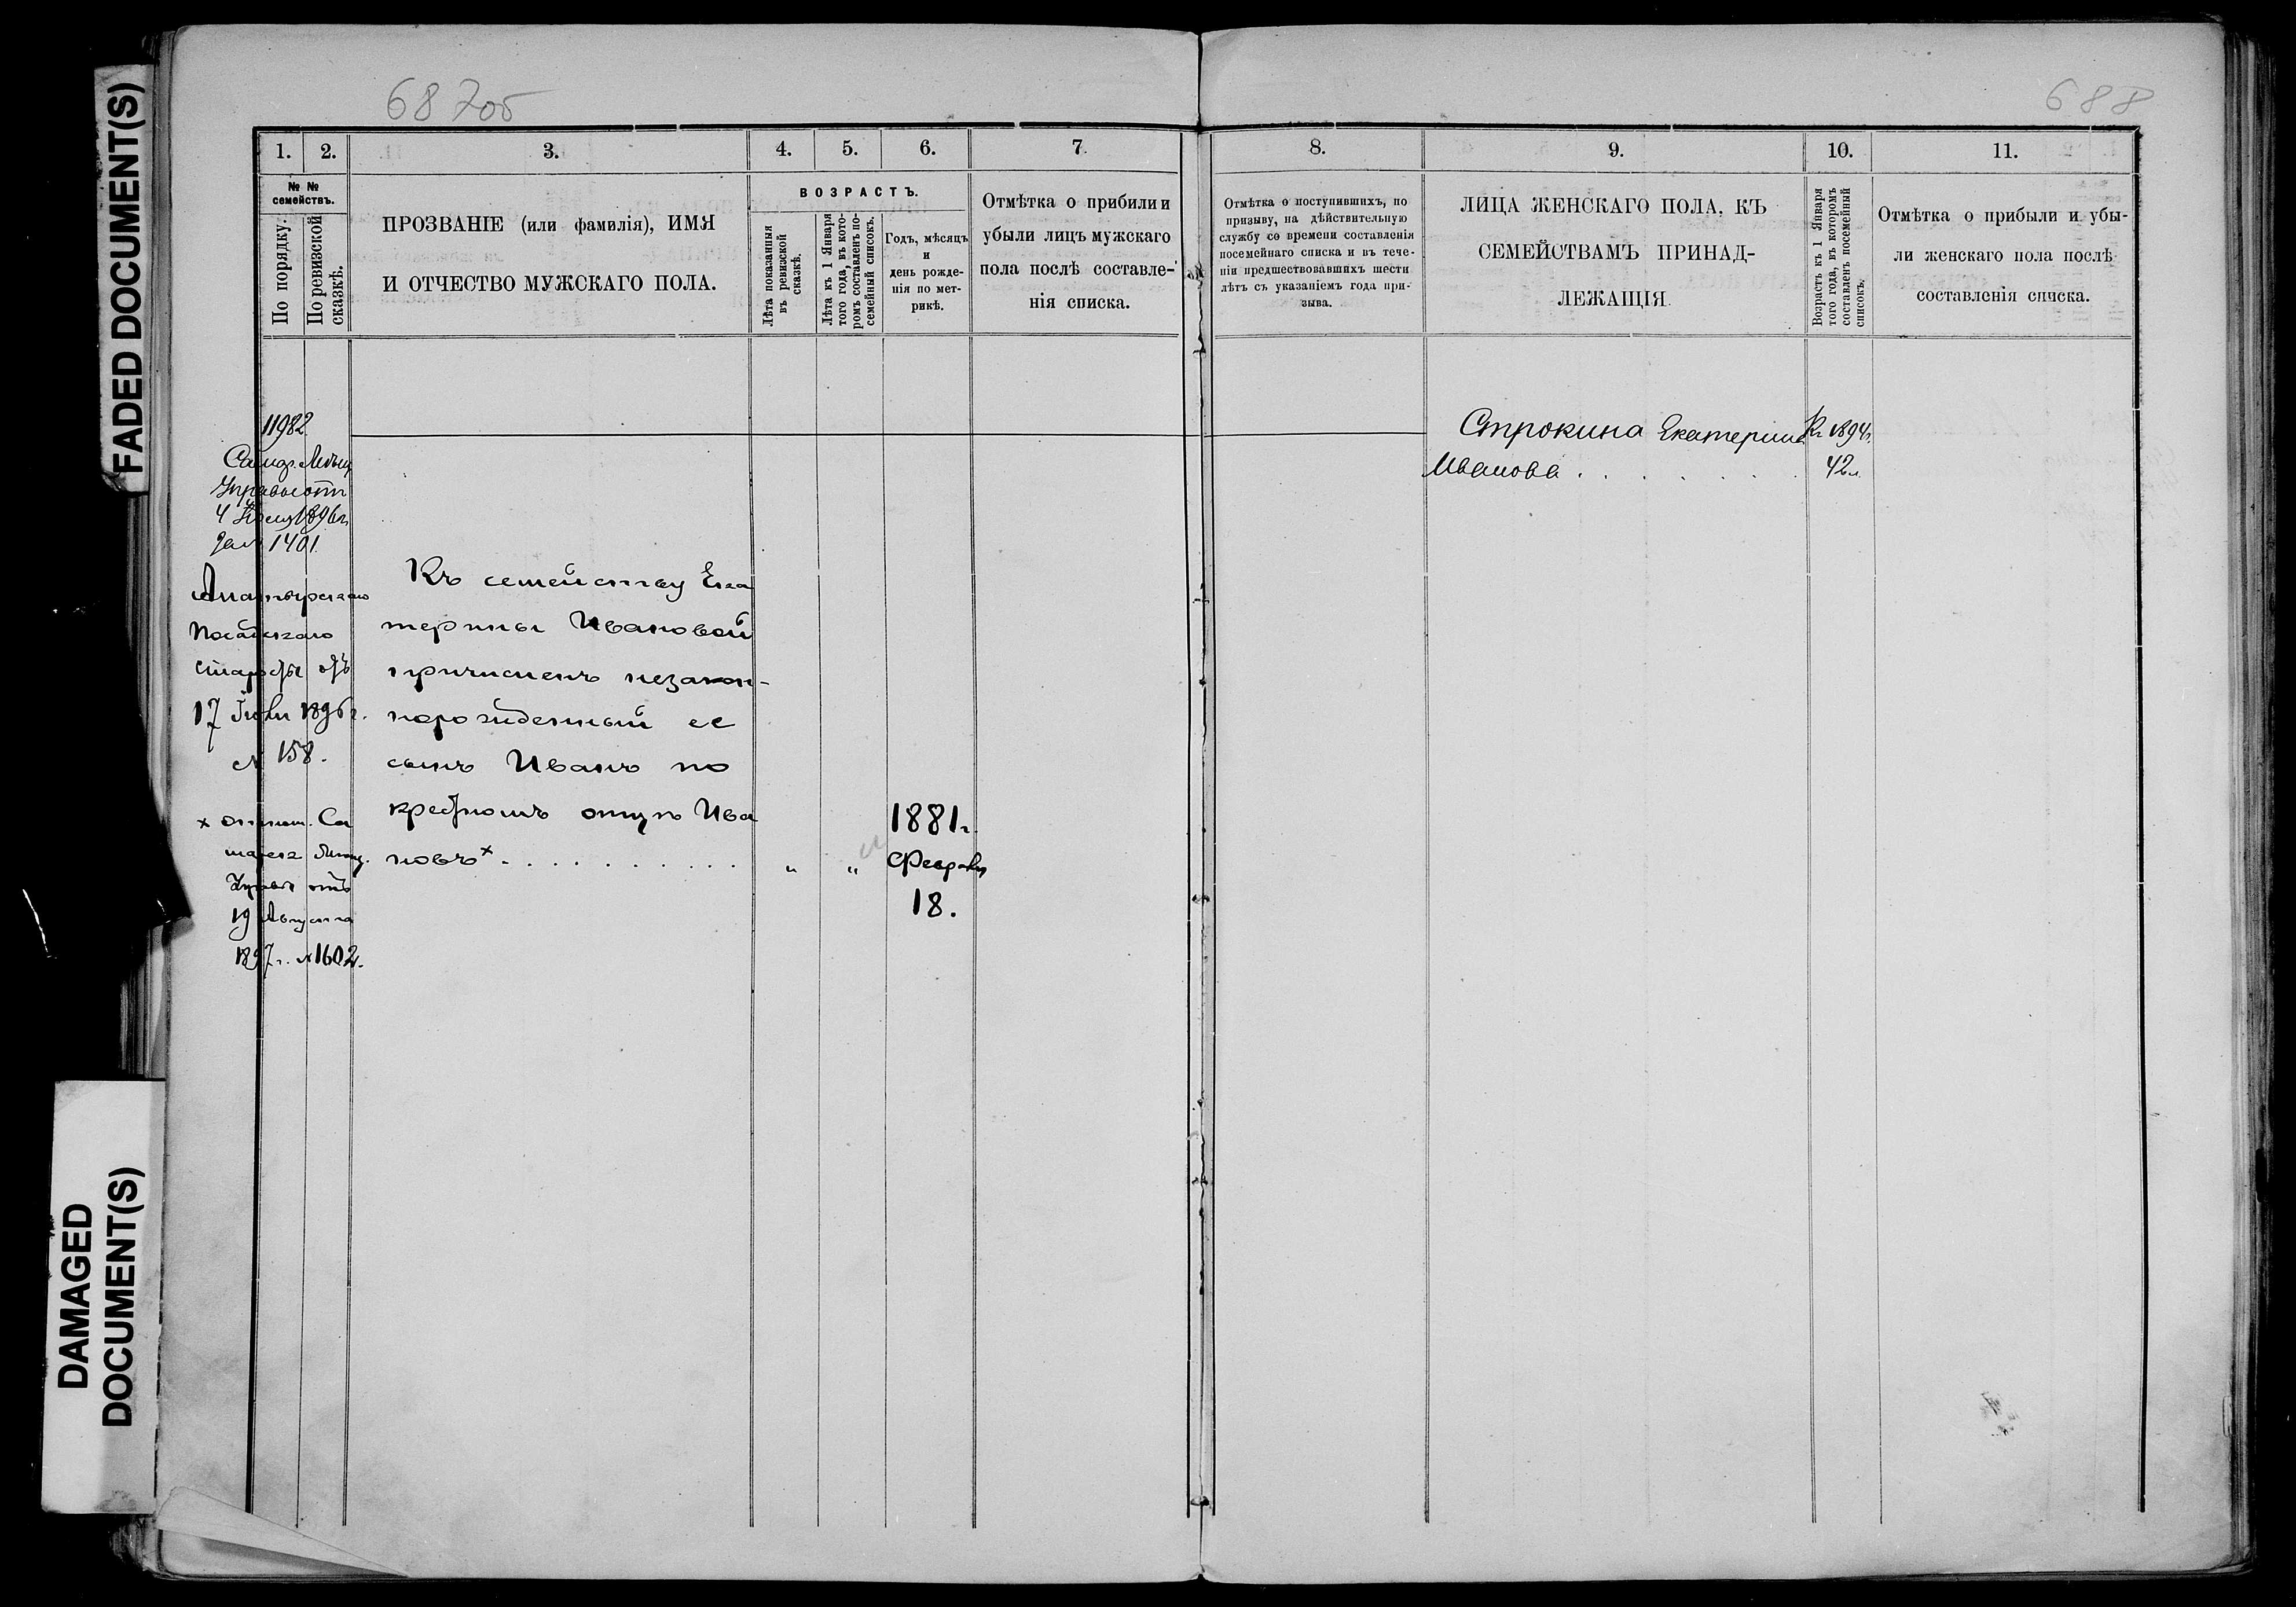 FADED DOCUMENT(S)
DAMAGED
DOCUMENT(S)
687об
1.
2.
3.
4.
5.
6.
7
№ №
семействъ.
По порядку.
По ревизской
сказкѣ.
ПРОЗВАНІЕ (или фамилія), ИМЯ
И ОТЧЕСТВО МУЖСКАГО ПОЛА.
ВОЗРАСТЪ.
Лѣта показанныя
въ ревизской
сказкѣ.
Лѣта къ 1 Января
того года, въ кото-
ромъ составленъ по-
семейный списокъ.
Годъ, мѣсяцъ
и
день рожде-
нія по мет-
рикѣ.
Отмѣтка о прибыли и
убыли лицъ мужскаго
пола послѣ составле-
нія списка.
11982
4 1896г.
1401
Посадскаго
старосты отъ
17 Іюля 1896г.
№ 158.
× отнош. Са
Управы отъ
19 Августа
1897г. №1602.
Къ семейству Ека
терины Ивановой
причисленъ незакон-
норожденный ее
сынъ Иванъ по
крестномъ отцѣ Ива
новъ× . . . . . . . . . . „ „
1881г.
Февраля
18.
688
8.
9.
10.
11.
Отмѣтка о поступившихъ, по
призыву, на дѣйствительную
службу со времени составленія
посемейнаго списка и въ тече-
ніи предшествовавшихъ шести
лѣтъ съ указаніемъ года при-
зыва.
ЛИЦА ЖЕНСКАГО ПОЛА, КЪ
СЕМЕЙСТВАМЪ ПРИНАД-
ЛЕЖАЩІЯ
Возрастъ къ 1 Января
того года, въ которомъ
составленъ посемейный
списокъ.
Отмѣтка о прибыли и убы-
ли женскаго пола послѣ
составленія списка.
Строкина Екатерина Къ 1894г.
Иванова . . . . . . . 42л.